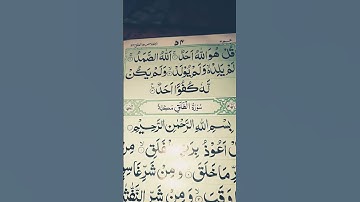 قُلْ هُوَ اللّٰهُ اَحَدٌ ۚ اَللّٰهُ الصَّمَدُ ۚ
لَمْ يَلِدْ ۙ وَلَمْ يُوْلَدْ ۙ وَلَمْ يَكُنْ
لَّهٗ كُفُوًا اَحَدٌ
سُوْرَةُ الْفَلَقِ مَكِّيَّةٌ
بِسْمِ اللّٰهِ الرَّحْمٰنِ الرَّحِيْمِ
اَعُوْذُ بِرَبِّ الْفَلَقِ ۙ مِنْ
شَرِّ مَا خَلَقَ ۙ وَمِنْ شَرِّ غَاسِقٍ
وَقَبَ ۙ وَمِنْ شَرِّ النَّفّٰثٰتِ